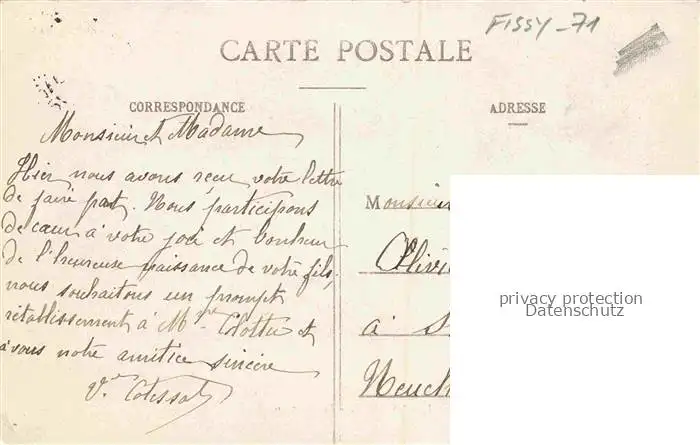 FISSY-71
CARTE POSTALE
CORRESPONDANCE
ADRESSE
Monsieur et Madame
Hier nous avons reçu votre lettre
de faire part. Nous participons
de cœur à votre joie et bonheur
de l'heureuse naissance de votre fils,
nous souhaitons un prompt
rétablissement à Mme et
à vous notre amitiée sincère
Vve
Monsieur
Olivi
à S
Neuch
privacy protection
Datenschutz